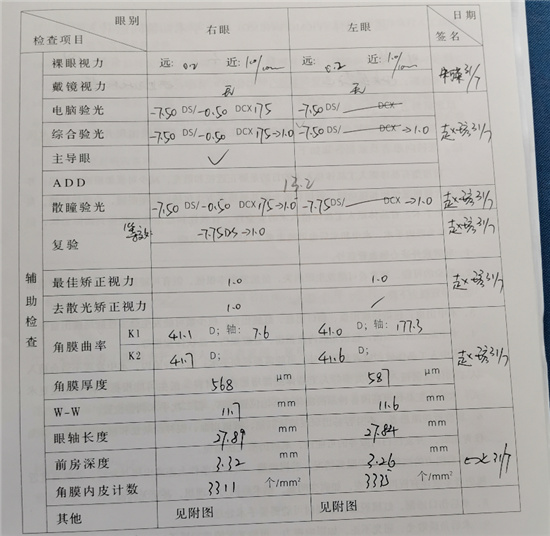 眼别 右眼 左眼 日期
检查项目 签名
裸眼视力 远: 0.2 近: 1.0/10cm 远: 0.2 近: 1.0/10cm 31/7
戴镜视力 无 无
电脑验光 -7.50 DS/ -0.50 DCX 175 -7.50 DS/ DCX
综合验光 -7.50 DS/ -0.50 DCX 175→1.0 -7.50 DS/ DCX →1.0 31/7
主导眼 ✓
ADD
散瞳验光 -7.50 DS/ -0.50 DCX 175→1.0 -7.75 DS/ DCX →1.0 31/7
复验 -7.75DS→1.0 31/7
辅助检查
最佳矫正视力 1.0 1.0 31/7
去散光矫正视力 1.0 /
角膜曲率 K1 41.1 D; 轴: 7.6 41.0 D; 轴: 177.3
K2 41.7 D; 41.6 D; 31/7
角膜厚度 568 μm 587 μm
W-W 11.7 mm 11.6 mm
眼轴长度 27.89 mm 27.84 mm
前房深度 3.32 mm 3.26 mm 31/7
角膜内皮计数 3311 个/mm² 3335 个/mm²
其他 见附图 见附图